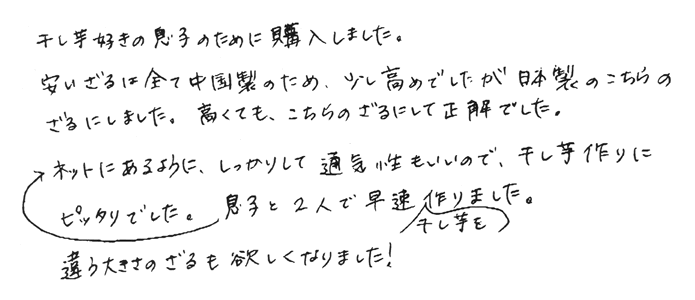 干し芋好きの息子のために購入しました。
安いざるは全て中国製のため、少し高めでしたが日本製のこちらの
ざるにしました。高くても、こちらのざるにして正解でした。
ネットにあるように、しっかりして通気性もいいので、干し芋作りに
ピッタリでした。息子と2人で早速作りました。
干し芋を
違う大きさのざるも欲しくなりました!